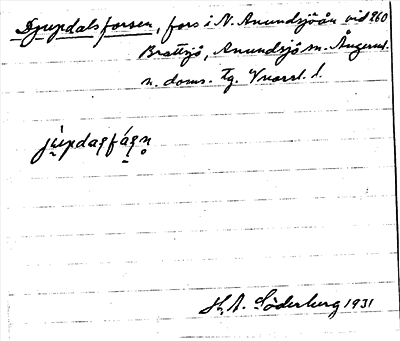 Djupdalsforsen, fors i N. Anundsjöån vid 260
Brattsjö, Anundsjö sn. Ångerml.
n. doms. Tg. Vnorrl. l.
júpdaₛfáₛn̥
H. A. Söderberg 1931